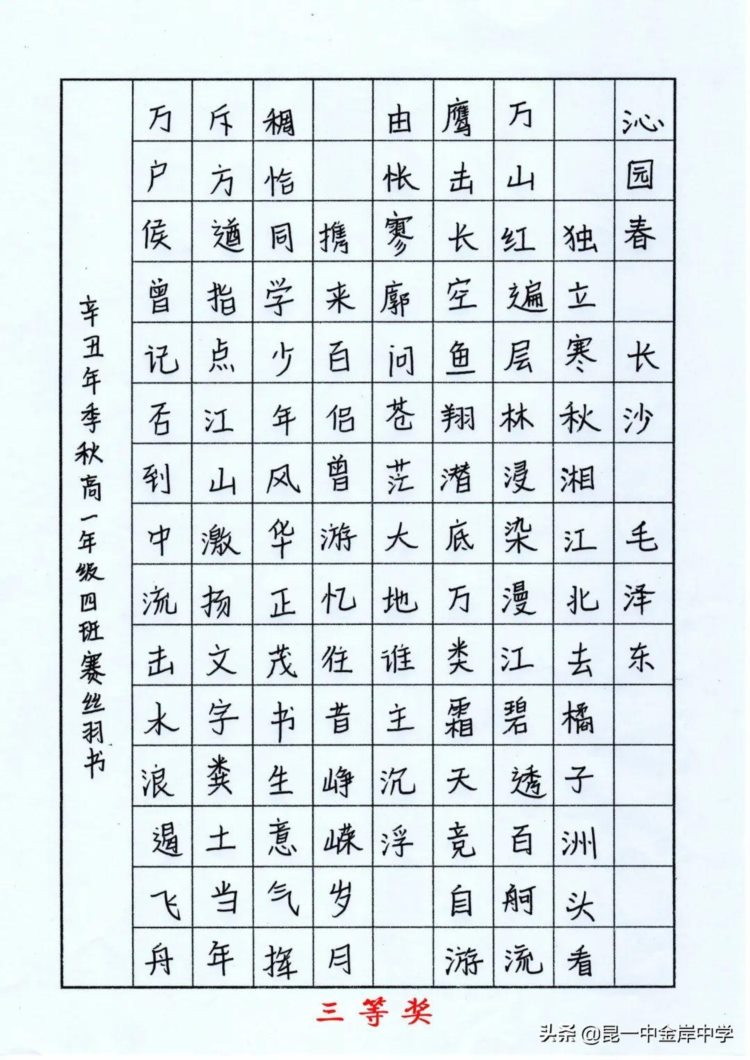 沁园春 长沙 毛泽东
独立寒秋湘江北去橘子洲头看
万山红遍层林浸染漫江碧透百舸流
鹰击长空鱼翔潜底万类霜天竞自游
由怅寥廓问苍茫大地谁主沉浮
携来百侣曾游忆往昔峥嵘岁月
稠恰同学少年风华正茂书生意气挥
斥方遒指点江山激扬文字粪土当年
万户侯曾记否到中流击水浪遏飞舟
辛丑年季秋高一年级四班赛丝羽书
三等奖
头条 @昆一中金岸中学